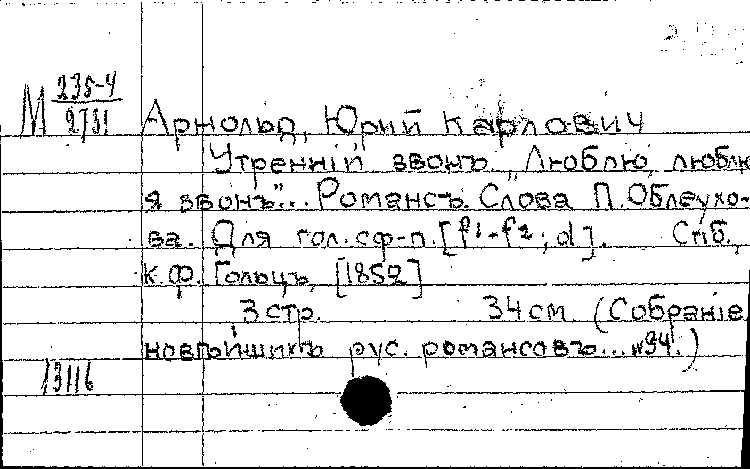 М 235-4
2731
Арнольд, Юрий Карлович
Утренній звонъ. "Люблю, люблю
я звонъ"... Романсъ. Слова П. Облеухо-
ва. Для гол. с ф-п. [f¹-f²; d]. Спб.,
к.ф. Гольцъ, [1852]
3 стр. 34 см. (Собраніе
новѣйшихъ рус. романсовъ... №94.)
13116